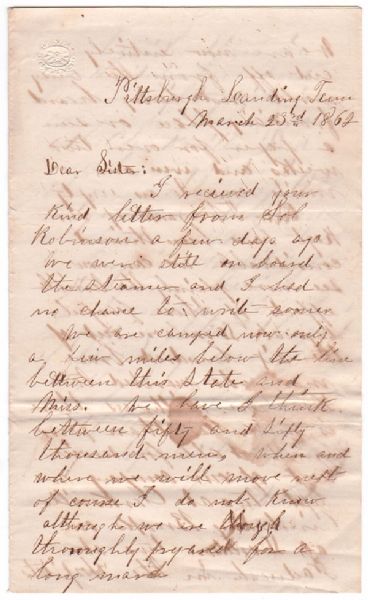 Pittsburgh Landing Tenn
March 23rd 1862
Dear Sister:
I received your
kind letter from Sol
Robinson a few days ago
we were still on board
the steamer and I had
no chance to write sooner
We are camped now only
a few miles below the line
between this State and
Miss. We have I think
between fifty and sixty
thousand men, when and
where we will move next
of course I do not know
although we are
thoroughly prepared for a
long march